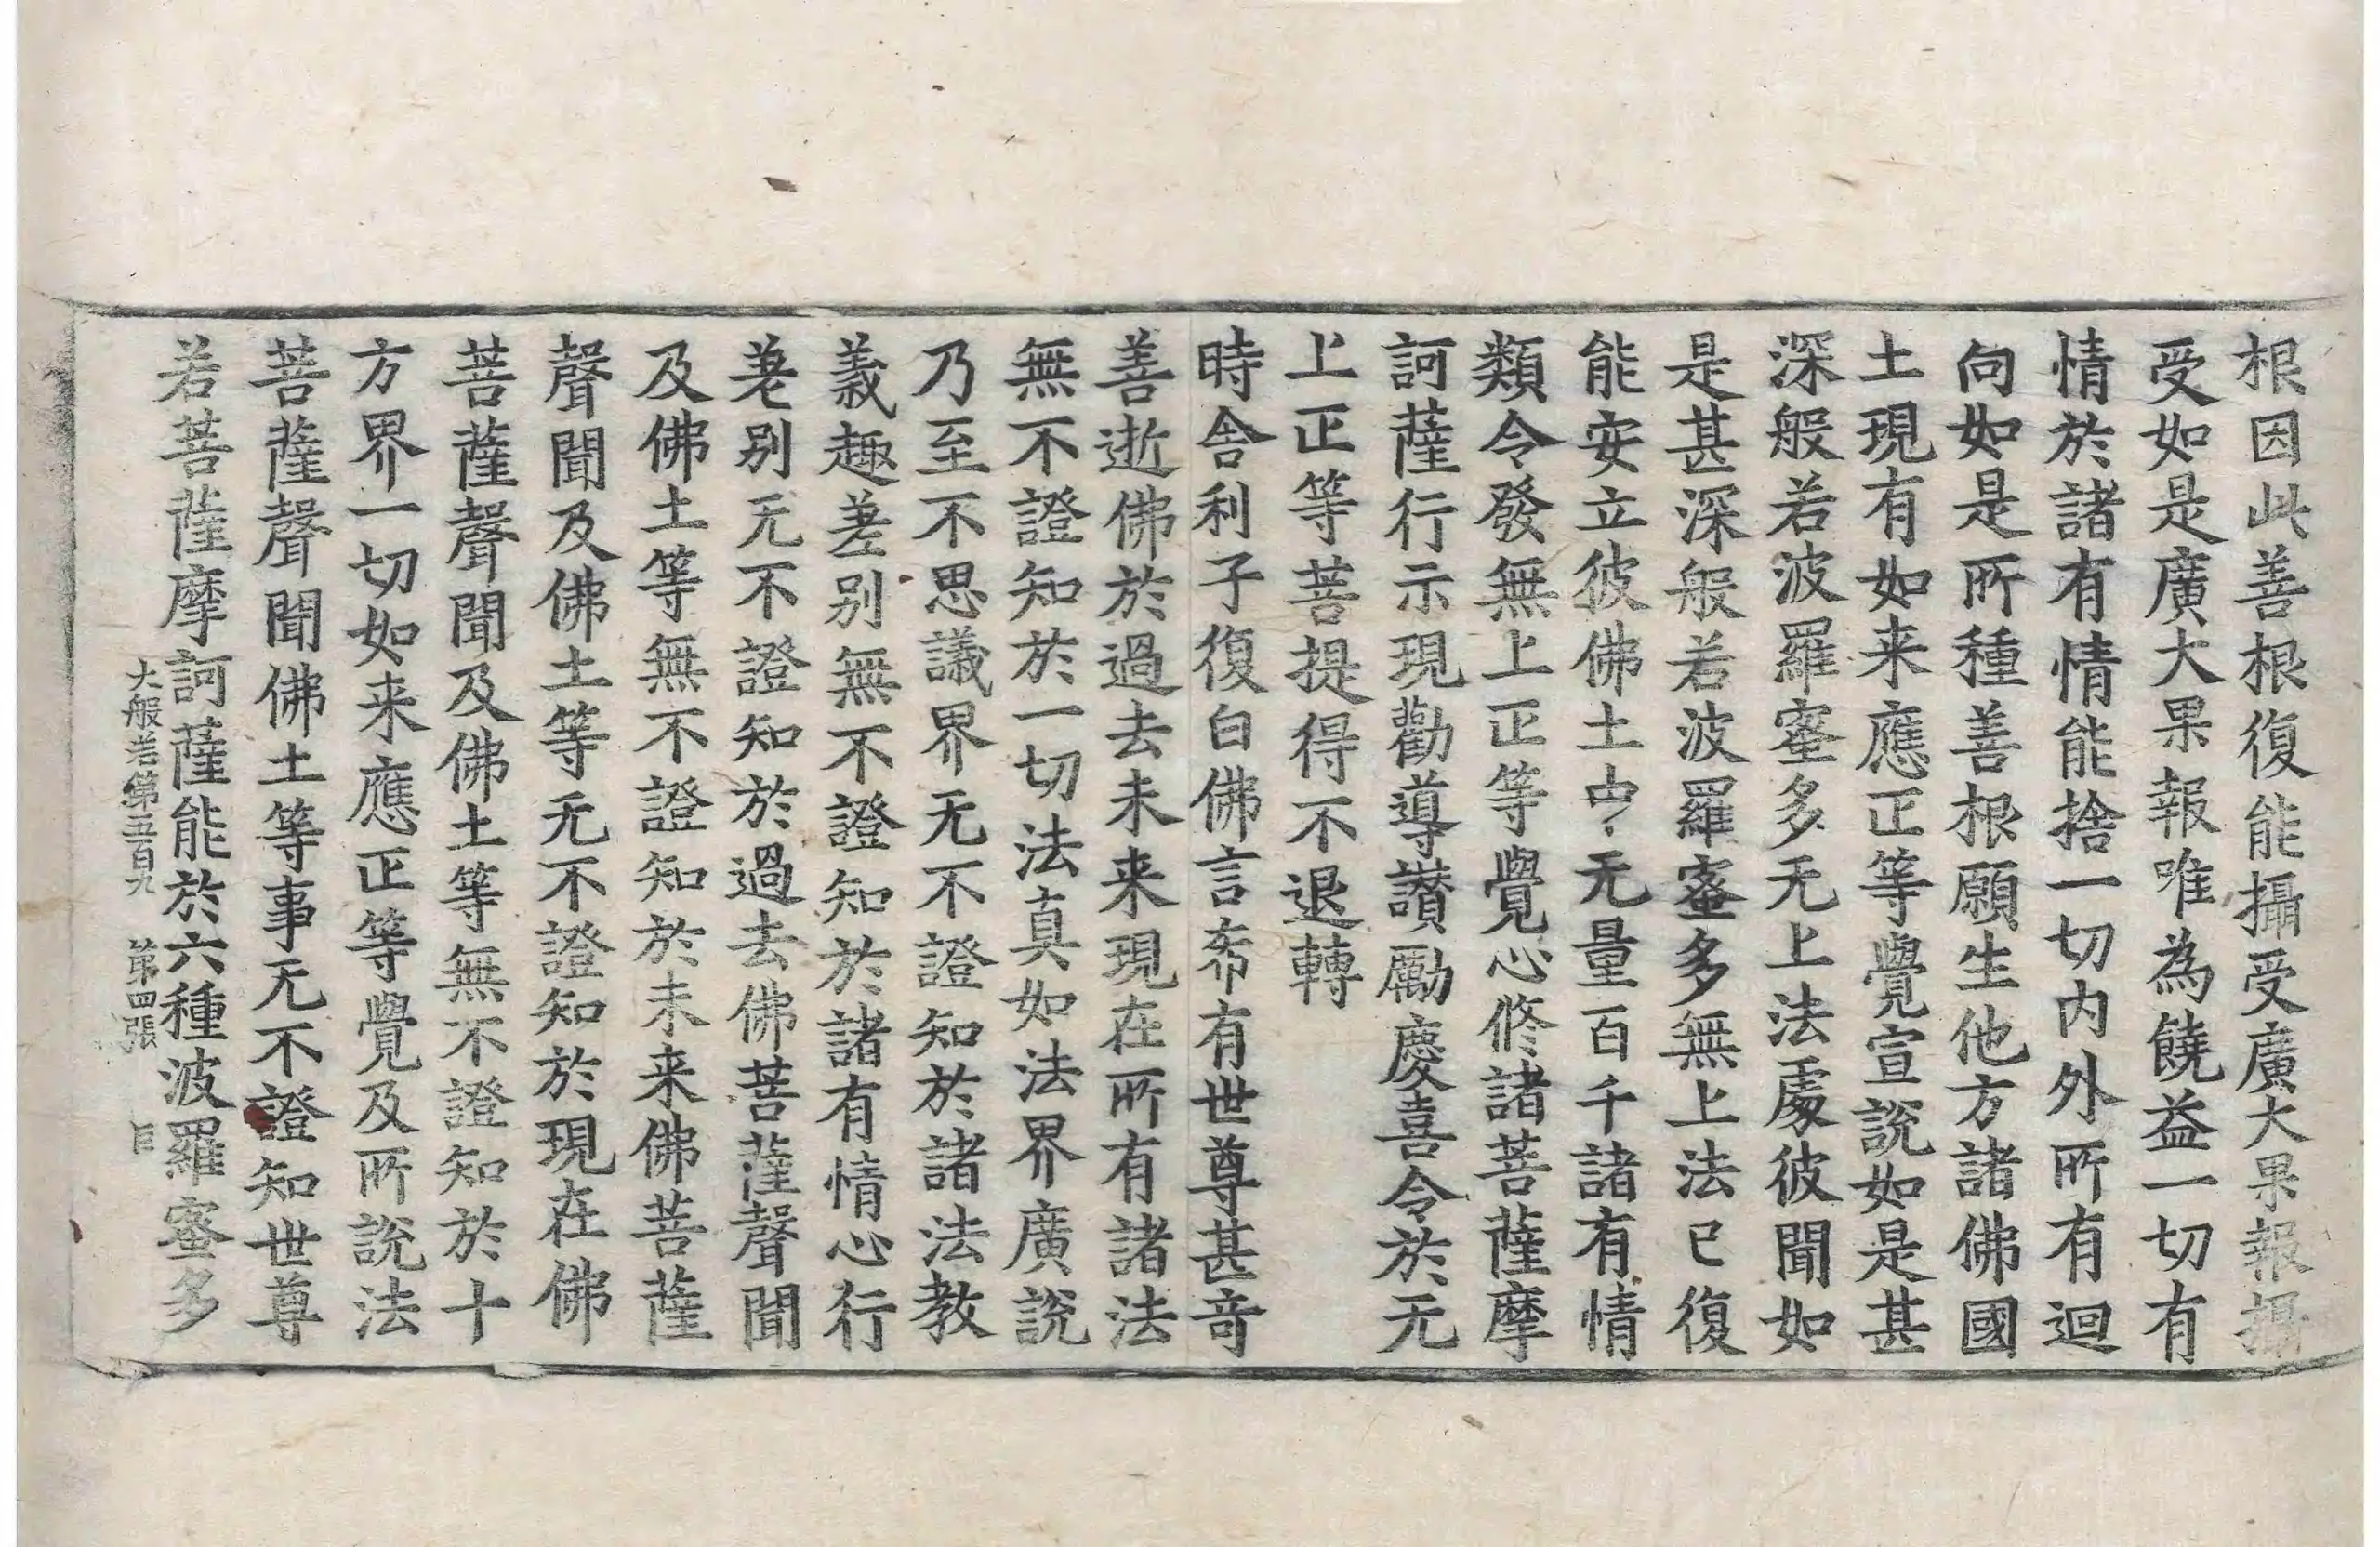 根因此善根復能攝受廣大果報攝
受如是廣大果報唯為饒益一切有
情於諸有情能捨一切內外所有迴
向如是所種善根願生他方諸佛國
土現有如来應正等覺宣説如是甚
深般若波羅蜜多无上法處彼聞如
是甚深般若波羅蜜多無上法已復
能安立彼佛土中无量百千諸有情
類令發無上正等覺心修諸菩薩摩
訶薩行示現勸導讚勵慶喜令於无
上正等菩提得不退轉
時舍利子復白佛言希有世尊甚奇
善逝佛於過去未来現在所有諸法
無不證知於一切法真如法界廣説
乃至不思議界无不證知於諸法教
義趣差别無不證知於諸有情心行
差别无不證知於過去佛菩薩聲聞
及佛土等無不證知於未来佛菩薩
聲聞及佛土等无不證知於現在佛
菩薩聲聞及佛土等無不證知於十
方界一切如来應正等覺及所説法
菩薩聲聞佛土等事无不證知世尊
若菩薩摩訶薩能於六種波羅蜜多
大般若第五百九 第四張